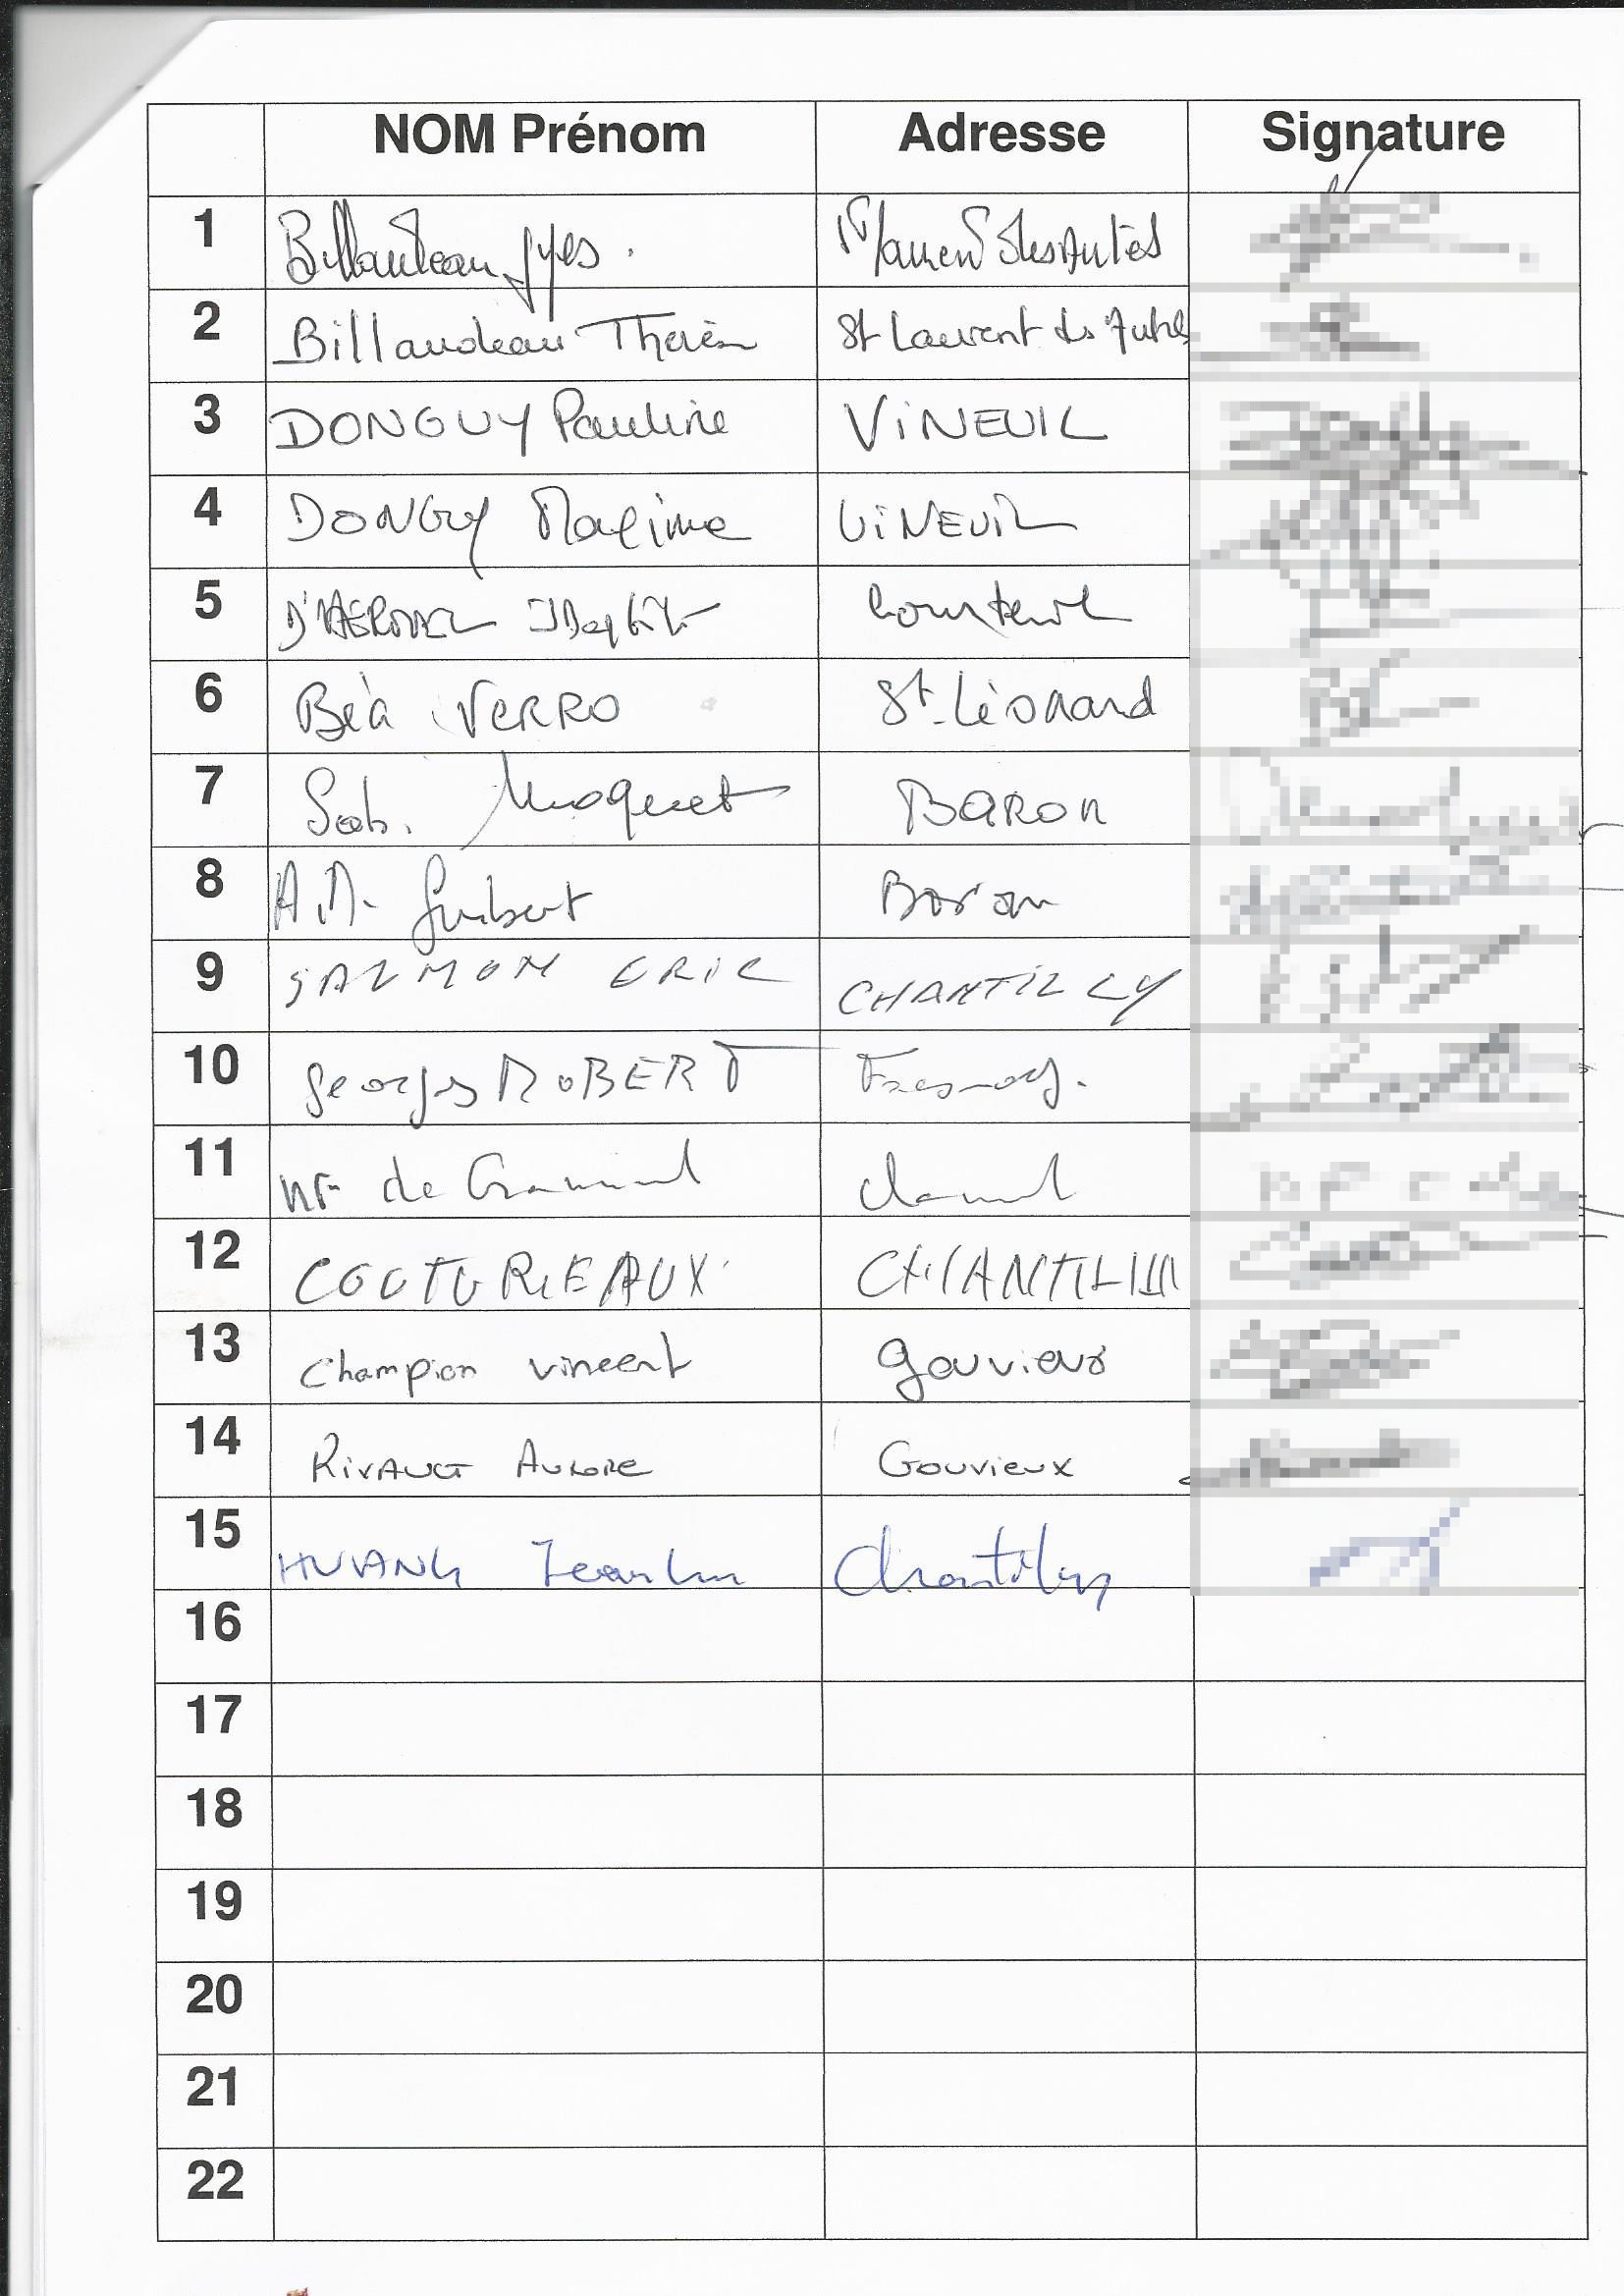 NOM Prénom Adresse Signature
1 Billaudeau Yves. St Laurent des Autels
2 Billaudeau Thérèse St Laurent des Autels
3 DONGUY Pauline ViNEUIL
4 DONGUY Maxime ViNEUIL
5 Courteuil
6 Béa VERRO St. Léonard
7 Seb. Moquet BARON
8 A.M. Guibert Baron
9 SALMON ERIC CHANTILLY
10 Georges ROBERT Fresnoy.
11 de
12 COUTUREAUX CHANTILLY
13 Champion vincent gouvieux
14 RIVAULT AURORE Gouvieux
15 HUANG Chantilly
16
17
18
19
20
21
22